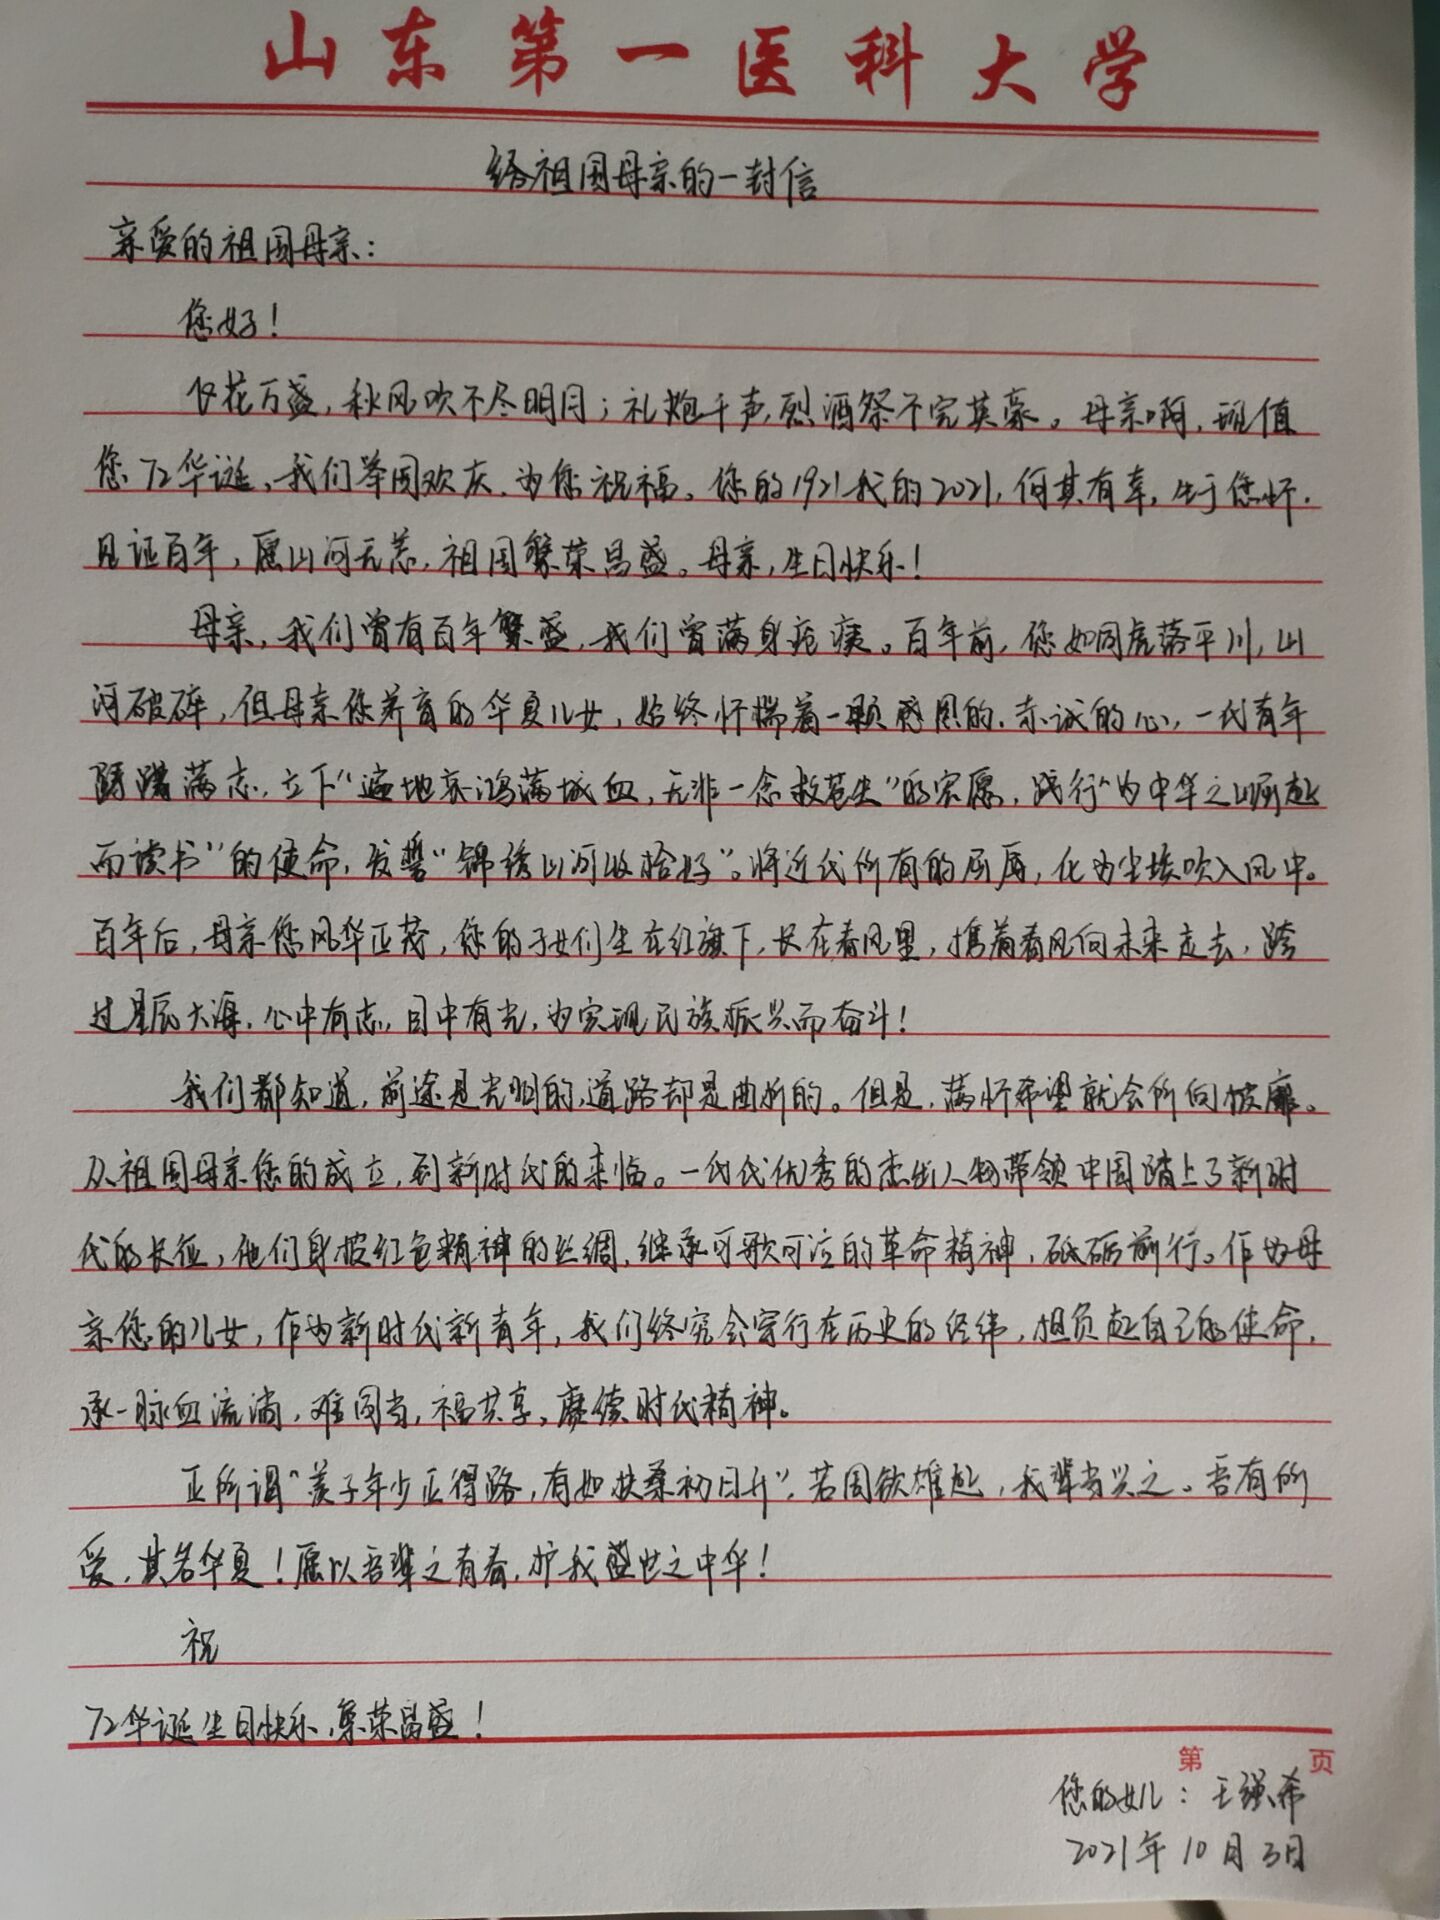 山东第一医科大学
给祖国母亲的一封信
亲爱的祖国母亲：
您好！
仅花万盛，秋风吹不尽明月；礼炮千声，烈酒祭不完英豪。母亲啊，现值
您72华诞，我们举国欢庆，为您祝福。您的1921我的2021，何其有幸，生于您怀，
见证百年，愿山河无恙，祖国繁荣昌盛。母亲，生日快乐！
母亲，我们曾有百年繁盛，我们曾满身疮痍。百年前，您如同虎落平川，山
河破碎，但母亲您养育的华夏儿女，始终怀揣着一颗感恩的、赤诚的心，一代青年
踌躇满志，立下“遍地哀鸿满城血，无非一念救苍生”的宏愿，践行“为中华之崛起
而读书”的使命，发誓“锦绣山河收拾好”。将近代所有的屈辱，化为尘埃吹入风中。
百年后，母亲您风华正茂，您的子女们生在红旗下，长在春风里，携着春风向未来走去，跨
过星辰大海，心中有志，目中有光，为实现民族振兴而奋斗！
我们都知道，前途是光明的，道路却是曲折的。但是，满怀希望就会所向披靡。
从祖国母亲您的成立，到新时代的来临。一代代优秀的杰出人物带领中国踏上了新时
代的长征，他们身披红色精神的丝绸，继承可歌可泣的革命精神，砥砺前行。作为母
亲您的儿女，作为新时代新青年，我们终究会穿行在历史的经纬，担负起自己的使命，
承一脉血流淌，难同当，福共享，赓续时代精神。
正所谓“羡子年少正得路，有如扶桑初日升”，若国欲雄起，我辈当兴之。吾有所
爱，其名华夏！愿以吾辈之青春，护我盛世之中华！
祝
72华诞生日快乐，繁荣昌盛！
第 页
您的女儿：王强希
2021年10月3日